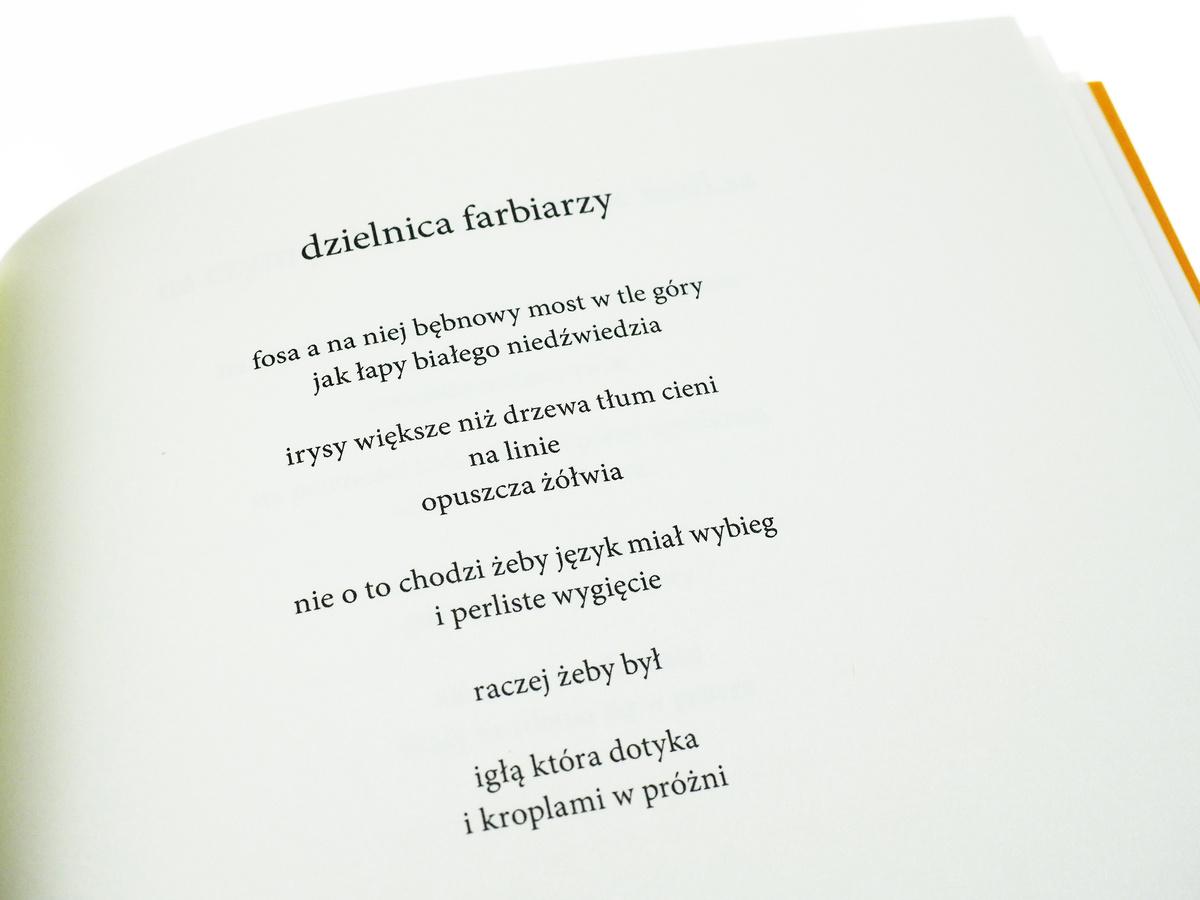 dzielnica farbiarzy
fosa a na niej bębnowy most w tle góry
jak łapy białego niedźwiedzia
irysy większe niż drzewa tłum cieni
na linie
opuszcza żółwia
nie o to chodzi żeby język miał wybieg
i perliste wygięcie
raczej żeby był
igłą która dotyka
i kroplami w próżni